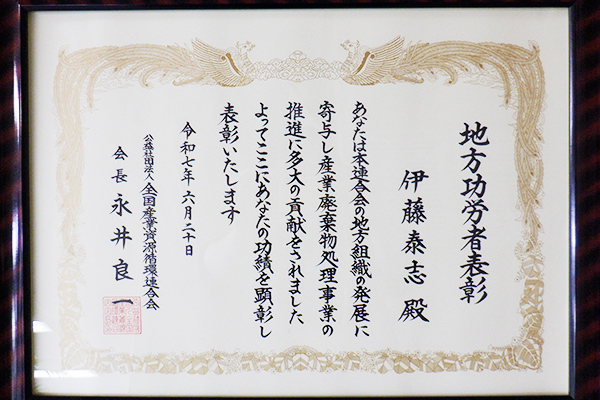 地方功労者表彰
伊藤泰志 殿
あなたは本連合会の地方組織の発展に
寄与し産業廃棄物処理事業の
推進に多大の貢献をされました
よってここにあなたの功績を顕彰し
表彰いたします
令和七年六月二十日
公益社団法人 全国産業資源循環連合会
会長 永井良一